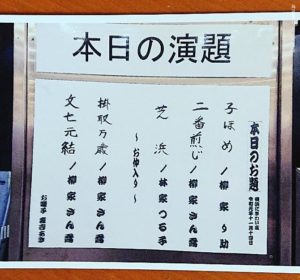 本日の演題
本日のお題
横浜にぎわい座
子ほめ/柳家り助
二番煎じ/柳家さん喬
芝浜/林家つる子
～お仲入り～
掛取万歳/柳家さん喬
文七元結/柳家さん喬
お囃子